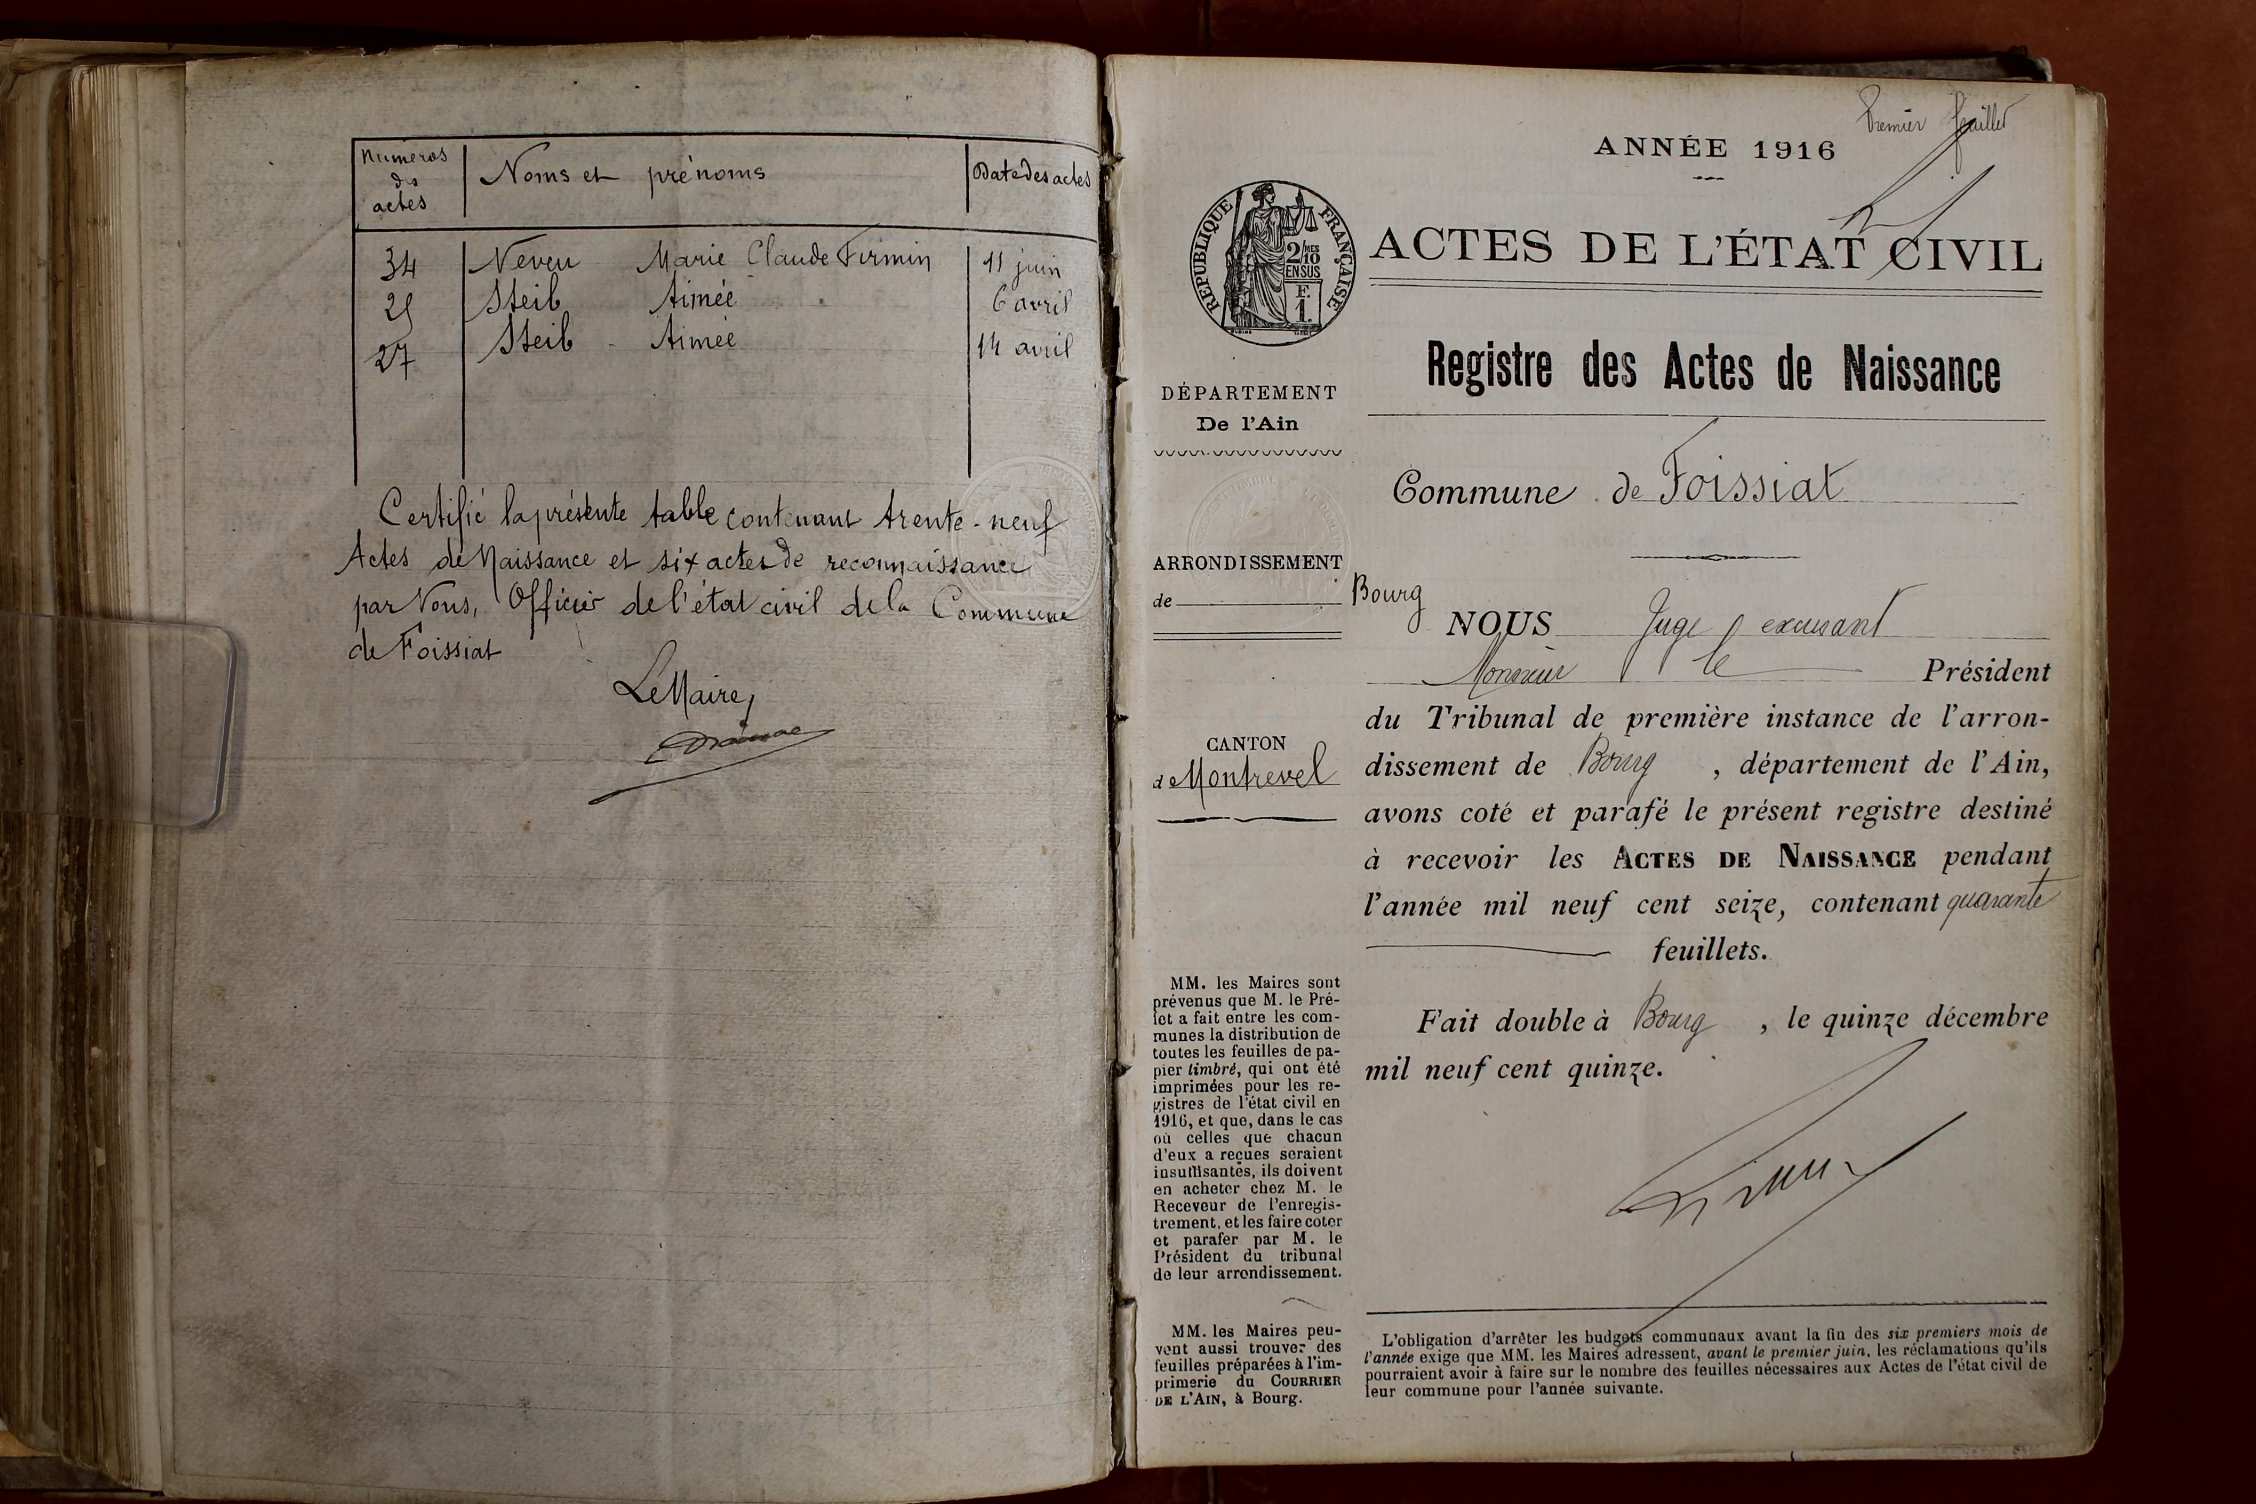 Numéros des actes | Noms et prénoms | Date des actes
34 Neveu Marie Claude Firmin 11 juin
25 Steib Aimée 6 avril
27 Steib - Aimée 14 avril
Certifié la présente table contenant trente-neuf
Actes de Naissance et six actes de reconnaissance
par Nous, Officier de l'état civil de la Commune
de Foissiat
Le Maire,
Premier feuillet
ANNÉE 1916
RÉPUBLIQUE FRANÇAISE
2/10 MES
EN SUS
F.
1.
ACTES DE L'ÉTAT CIVIL
Registre des Actes de Naissance
DÉPARTEMENT
De l'Ain
Commune de Foissiat
ARRONDISSEMENT
de Bourg
CANTON
de Montrevel
NOUS Juge excusant
Monsieur le Président
du Tribunal de première instance de l'arron-
dissement de Bourg, département de l'Ain,
avons coté et parafé le présent registre destiné
à recevoir les ACTES DE NAISSANCE pendant
l'année mil neuf cent seize, contenant quarante
feuillets.
Fait double à Bourg, le quinze décembre
mil neuf cent quinze.
MM. les Maires sont
prévenus que M. le Pré-
fet a fait entre les com-
munes la distribution de
toutes les feuilles de pa-
pier timbré, qui ont été
imprimées pour les re-
gistres de l'état civil en
1916, et que, dans le cas
où celles que chacun
d'eux a reçues seraient
insuffisantes, ils doivent
en acheter chez M. le
Receveur de l'enregis-
trement, et les faire coter
et parafer par M. le
Président du tribunal
de leur arrondissement.
MM. les Maires peu-
vent aussi trouver des
feuilles préparées à l'im-
primerie du COURRIER
DE L'AIN, à Bourg.
L'obligation d'arrêter les budgets communaux avant la fin des six premiers mois de
l'année exige que MM. les Maires adressent, avant le premier juin, les réclamations qu'ils
pourraient avoir à faire sur le nombre des feuilles nécessaires aux Actes de l'état civil de
leur commune pour l'année suivante.